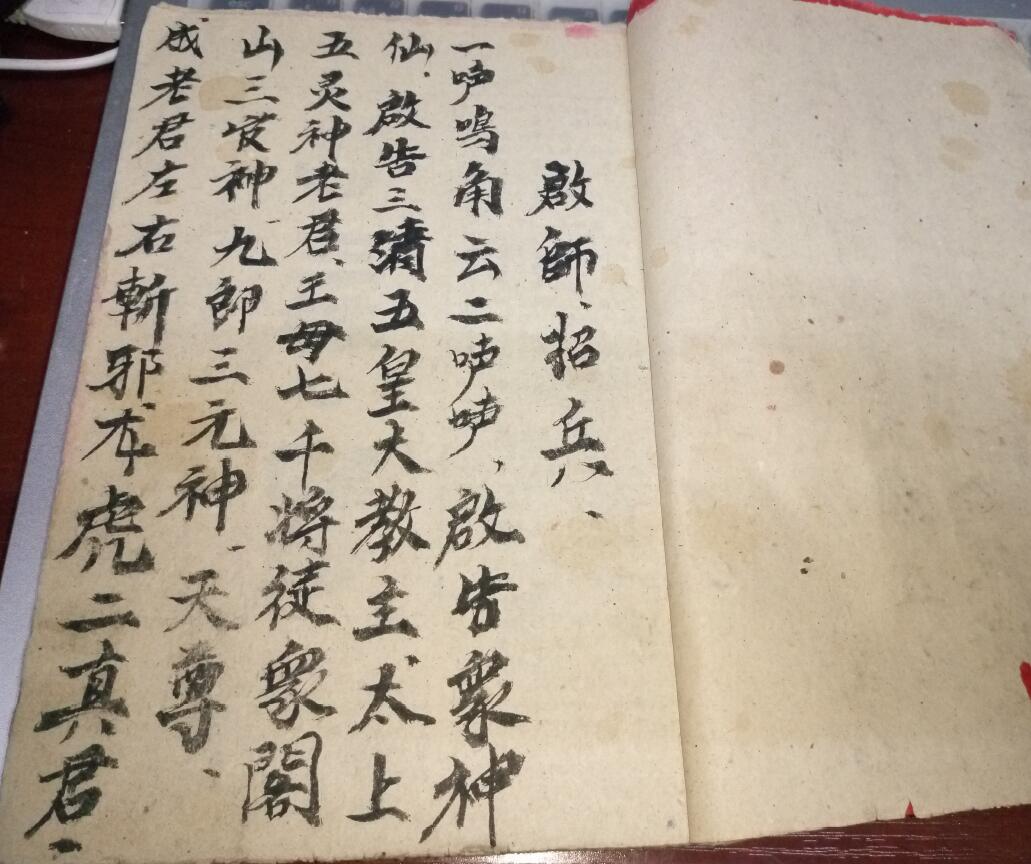 啟師、招兵、
一吽鳴角云二吽吽，啟告衆神
仙，啟告三清五皇大教主太上
五灵神老君、王母七千将徒衆閣
山三官神九郎三元神、天尊、
成老君左右斬邪龙虎二真君、